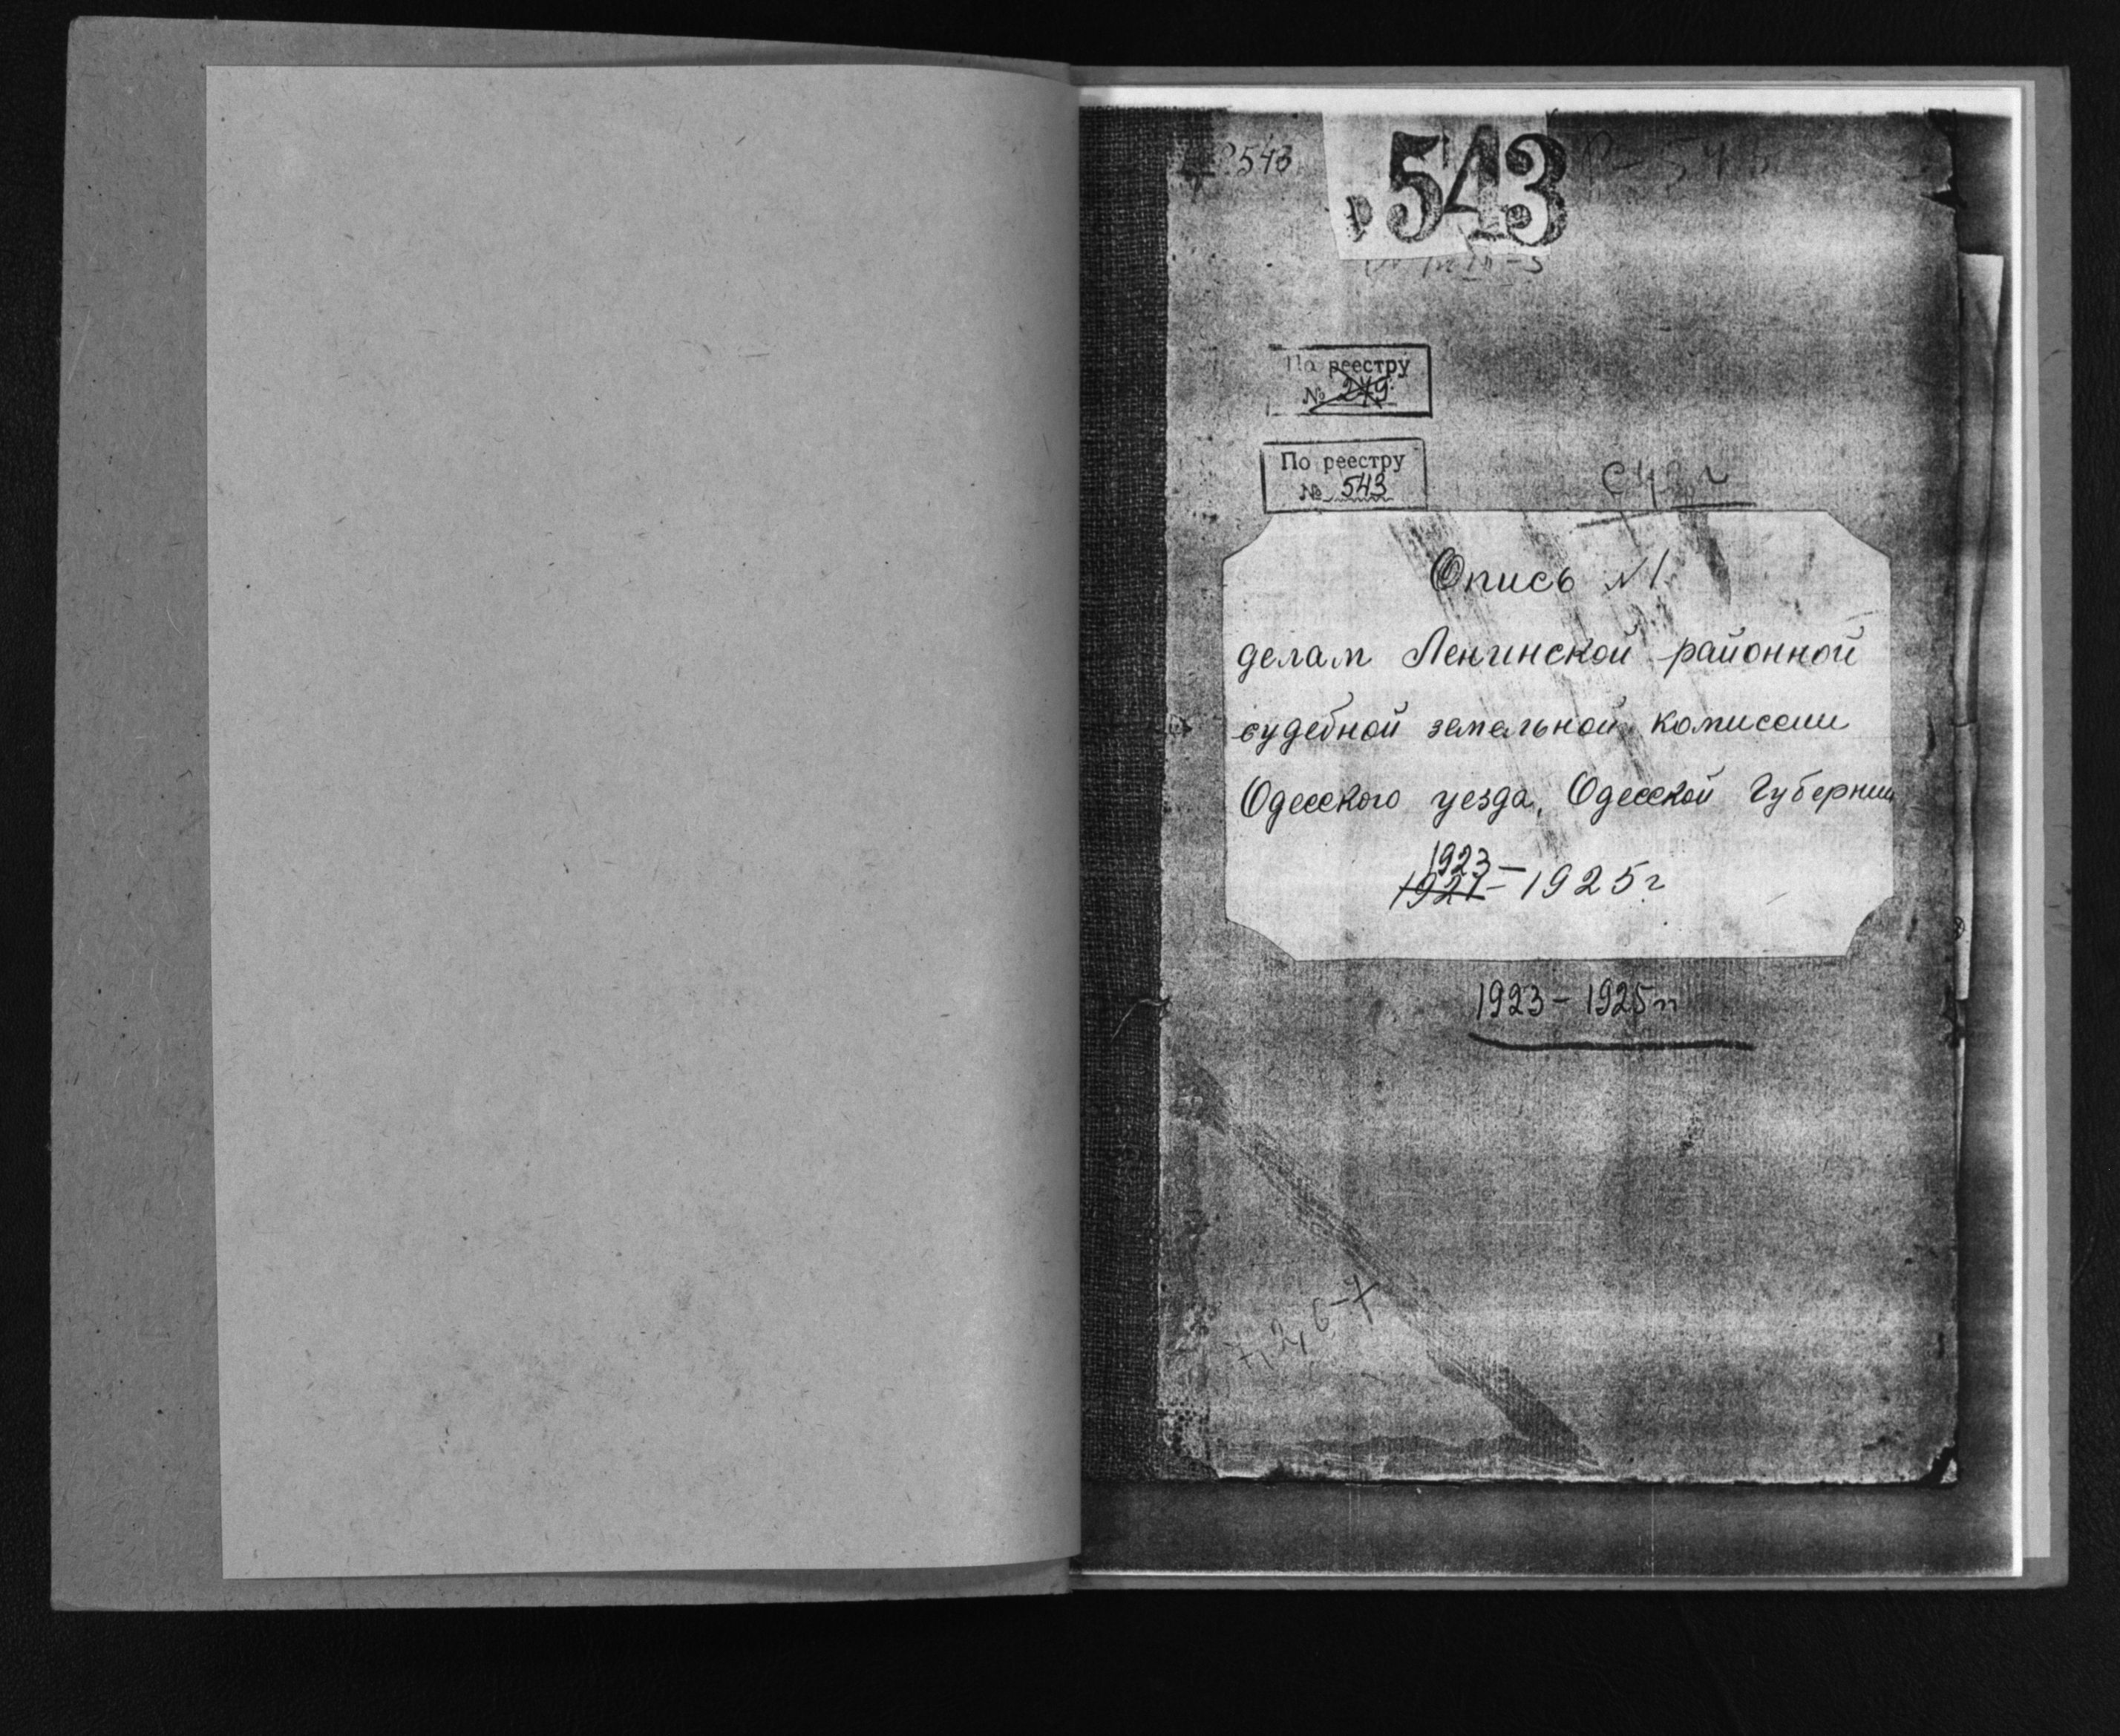 Р543
р 543
Р-543
По реестру
№ 249
По реестру
№ 543
Опись №1
делам Ленинской районной
судебной земельной комиссии
Одесского уезда, Одесской Губернии
1923 –
1921 – 1925г
1923 – 1925гг